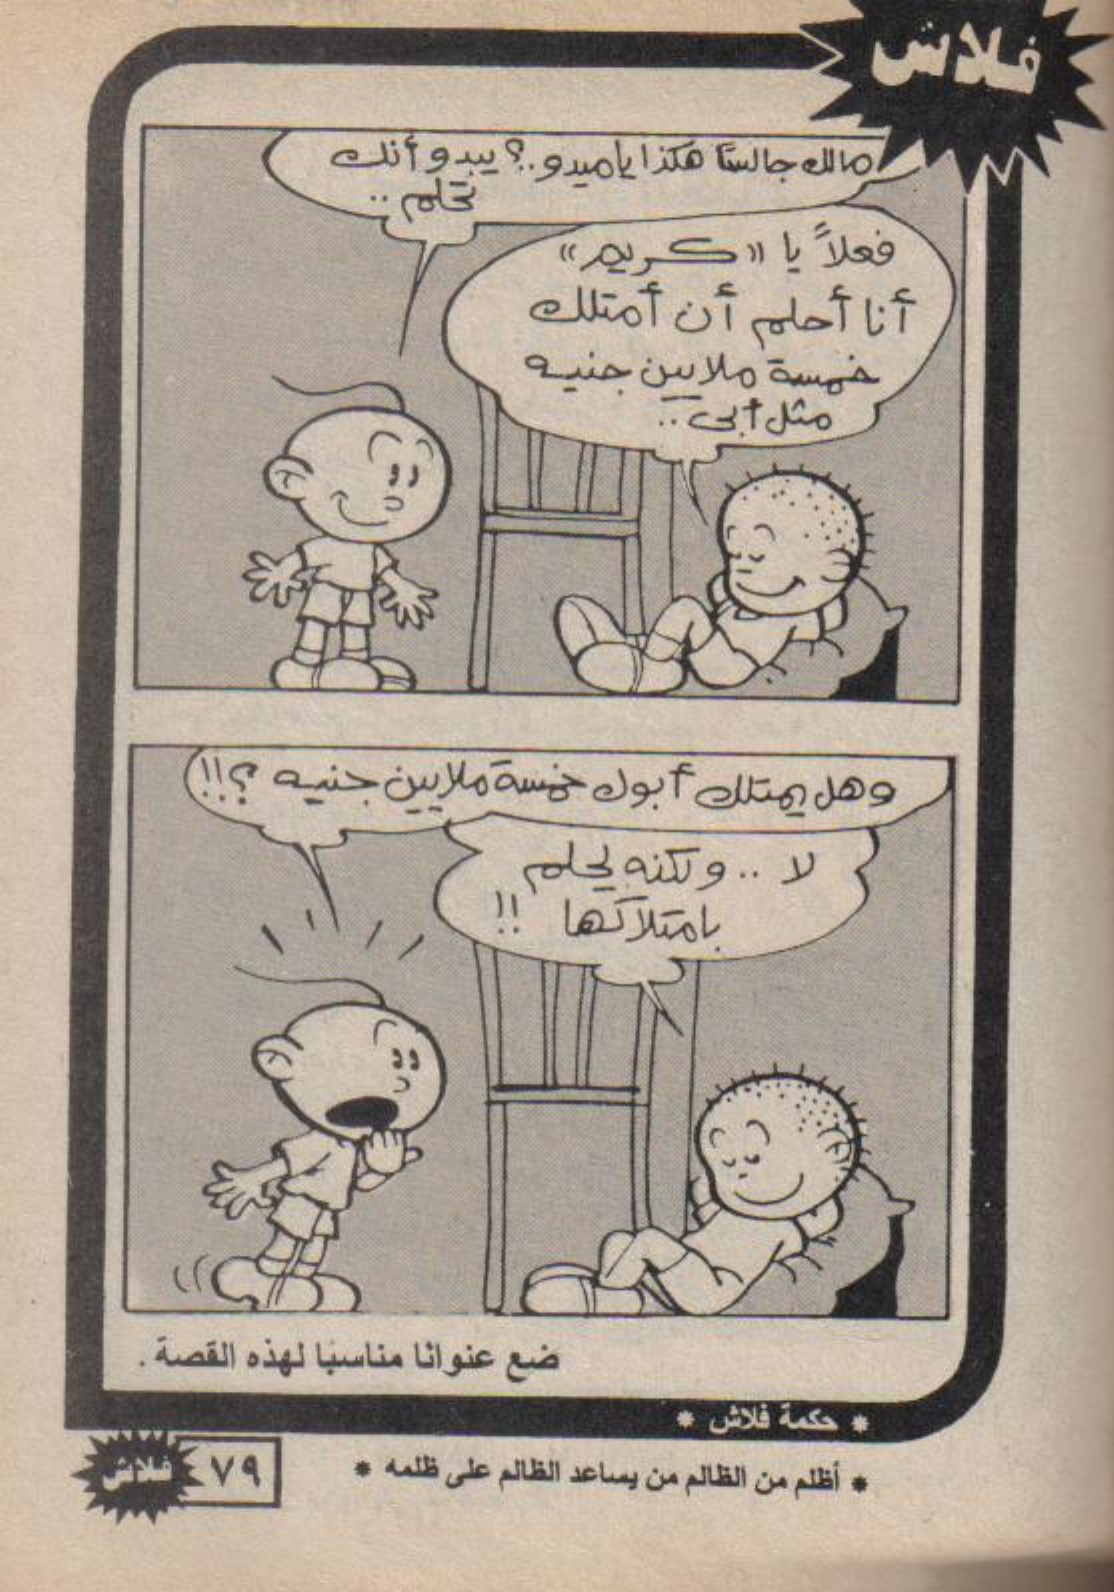 فلاش
مالك جالسًا هكذا ياميدو..؟ يبدو أنك
تحلم ..
فعلاً يا «كريم»
أنا أحلم أن أمتلك
خمسة ملايين جنيه
مثل أبى ..
وهل يمتلك أبوك خمسة ملايين جنيه ؟!!
لا .. ولكنه يحلم
بامتلاكها !!
ضع عنوانًا مناسبًا لهذه القصة .
* حكمة فلاش *
* أظلم من الظالم من يساعد الظالم على ظلمه *
٧٩
فلاش